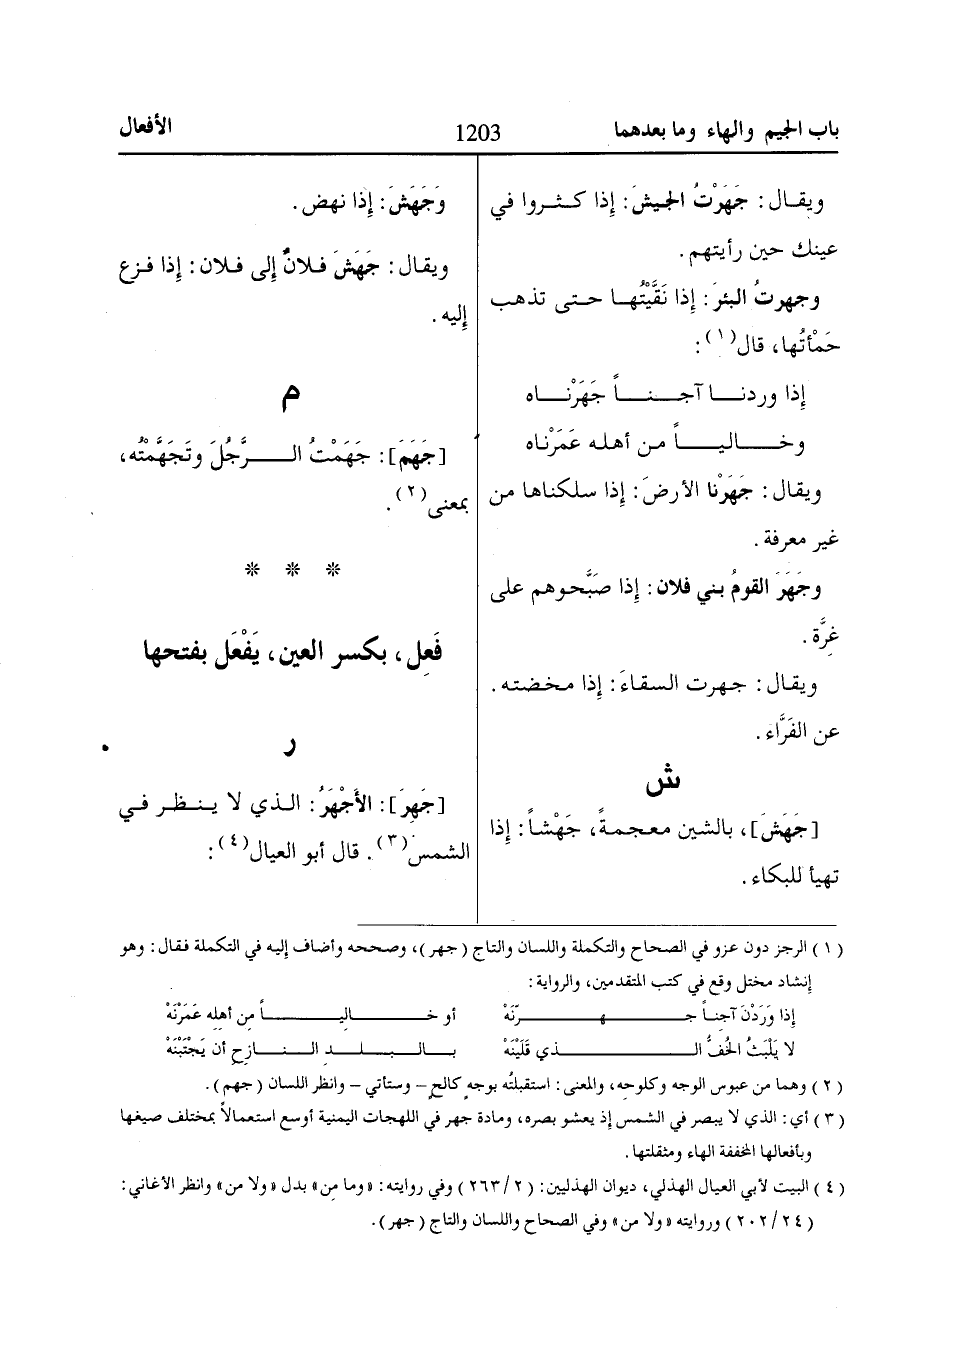 باب الجيم والهاء وما بعدهما
1203
الأفعال
ويقال: جَهَرْتُ الجيشَ: إذا كثروا في
عينك حين رأيتهم.
وجهرتُ البئرَ: إذا نَقَّيْتُها حتى تذهب
حَمْأتُها، قال(١):
إذا وردنا آجناً جَهَرْناه
وخالياً من أهله عَمَرْناه
ويقال: جَهَرْنا الأرضَ: إذا سلكناها من
غير معرفة.
وجَهَرَ القومُ بني فلان: إذا صَبَّحوهم على
غِرَّة.
ويقال: جهرت السقاءَ: إذا مخضته.
عن الفَرَّاء.
ش
[جَهَشَ]، بالشين معجمةً، جَهْشاً: إذا
تهيأ للبكاء.
وَجَهَشَ: إذا نهض.
ويقال: جَهَشَ فلانٌ إلى فلان: إذا فزع
إليه.
م
[جَهَمَ]: جَهَمْتُ الرَّجُلَ وتَجَهَّمْتُه،
بمعنى(٢).
* * *
فَعِل، بكسر العين، يَفْعَل بفتحها
ر
[جَهِرَ]: الأَجْهَرُ: الذي لا ينظر في
الشمس(٣). قال أبو العيال(٤):
(١) الرجز دون عزو في الصحاح والتكملة واللسان والتاج (جهر)، وصححه وأضاف إليه في التكملة فقال: وهو
إنشاد مختل وقع في كتب المتقدمين، والرواية:
إذا وَرَدْنَ آجناً جهرْنَهْ أو خالياً من أهلِه عَمَرْنَهْ
لا يَلْبَثُ الخُفُّ الذي قَلَبْنَهْ بالبلد النازحِ أن يَجْتَبْنَهْ
(٢) وهما من عبوس الوجه وكلوحه، والمعنى: استقبلتُه بوجهٍ كالحٍ – وستأتي – وانظر اللسان (جهم).
(٣) أي: الذي لا يبصر في الشمس إذ يعشو بصره، ومادة جهر في اللهجات اليمنية أوسع استعمالاً بمختلف صيغها
وبأفعالها المخففة الهاء ومثقلتها.
(٤) البيت لأبي العيال الهذلي، ديوان الهذليين: (٢/٢٦٣) وفي روايته: «وما مِن» بدل «ولا من» وانظر الأغاني:
(٢٤/٢٠٢) وروايته «ولا من» وفي الصحاح واللسان والتاج (جهر).